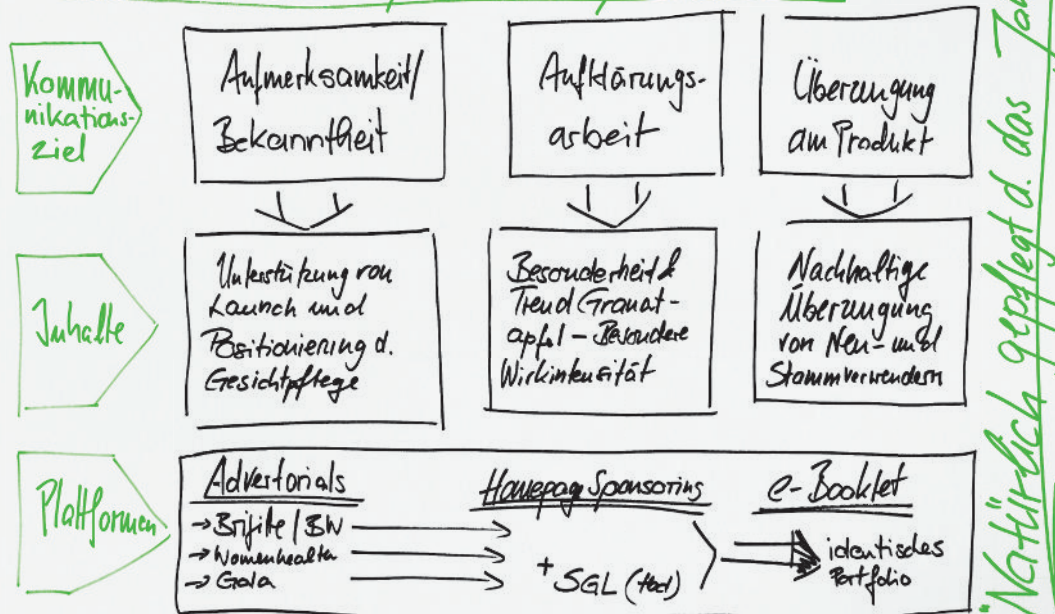 Kommu-
nikations-
ziel
Aufmerksamkeit/
Bekanntheit
Aufklärungs-
arbeit
Überzeugung
am Produkt
Inhalte
Unterstützung von
Launch und
Positionierung d.
Gesichtpflege
Besonderheit &
Trend Granat-
apfel – Besondere
Wirkintensität
Nachhaltige
Überzeugung
von Neu- und
Stammverwendern
Plattformen
Advertorials
→ Brigitte / BW
→ Womenhealth
→ Gala
Homepage Sponsoring
+ SGL
e-Booklet
identisches
Portfolio
"Natürlich gepflegt d. das